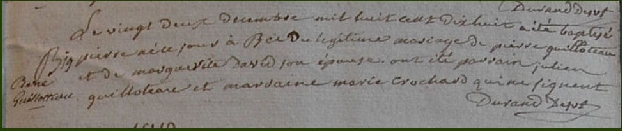 Durand Desst
Le vingt deux decembre mil huit cent dix huit a été baptisé
pierre né ce jour à du légitime mariage de pierre guilloteau
et de marguerite david son épouse. ont été parrain julien
guilloteau et marraine marie Crochard qui ne signent
Durand Desst
Guilloteau